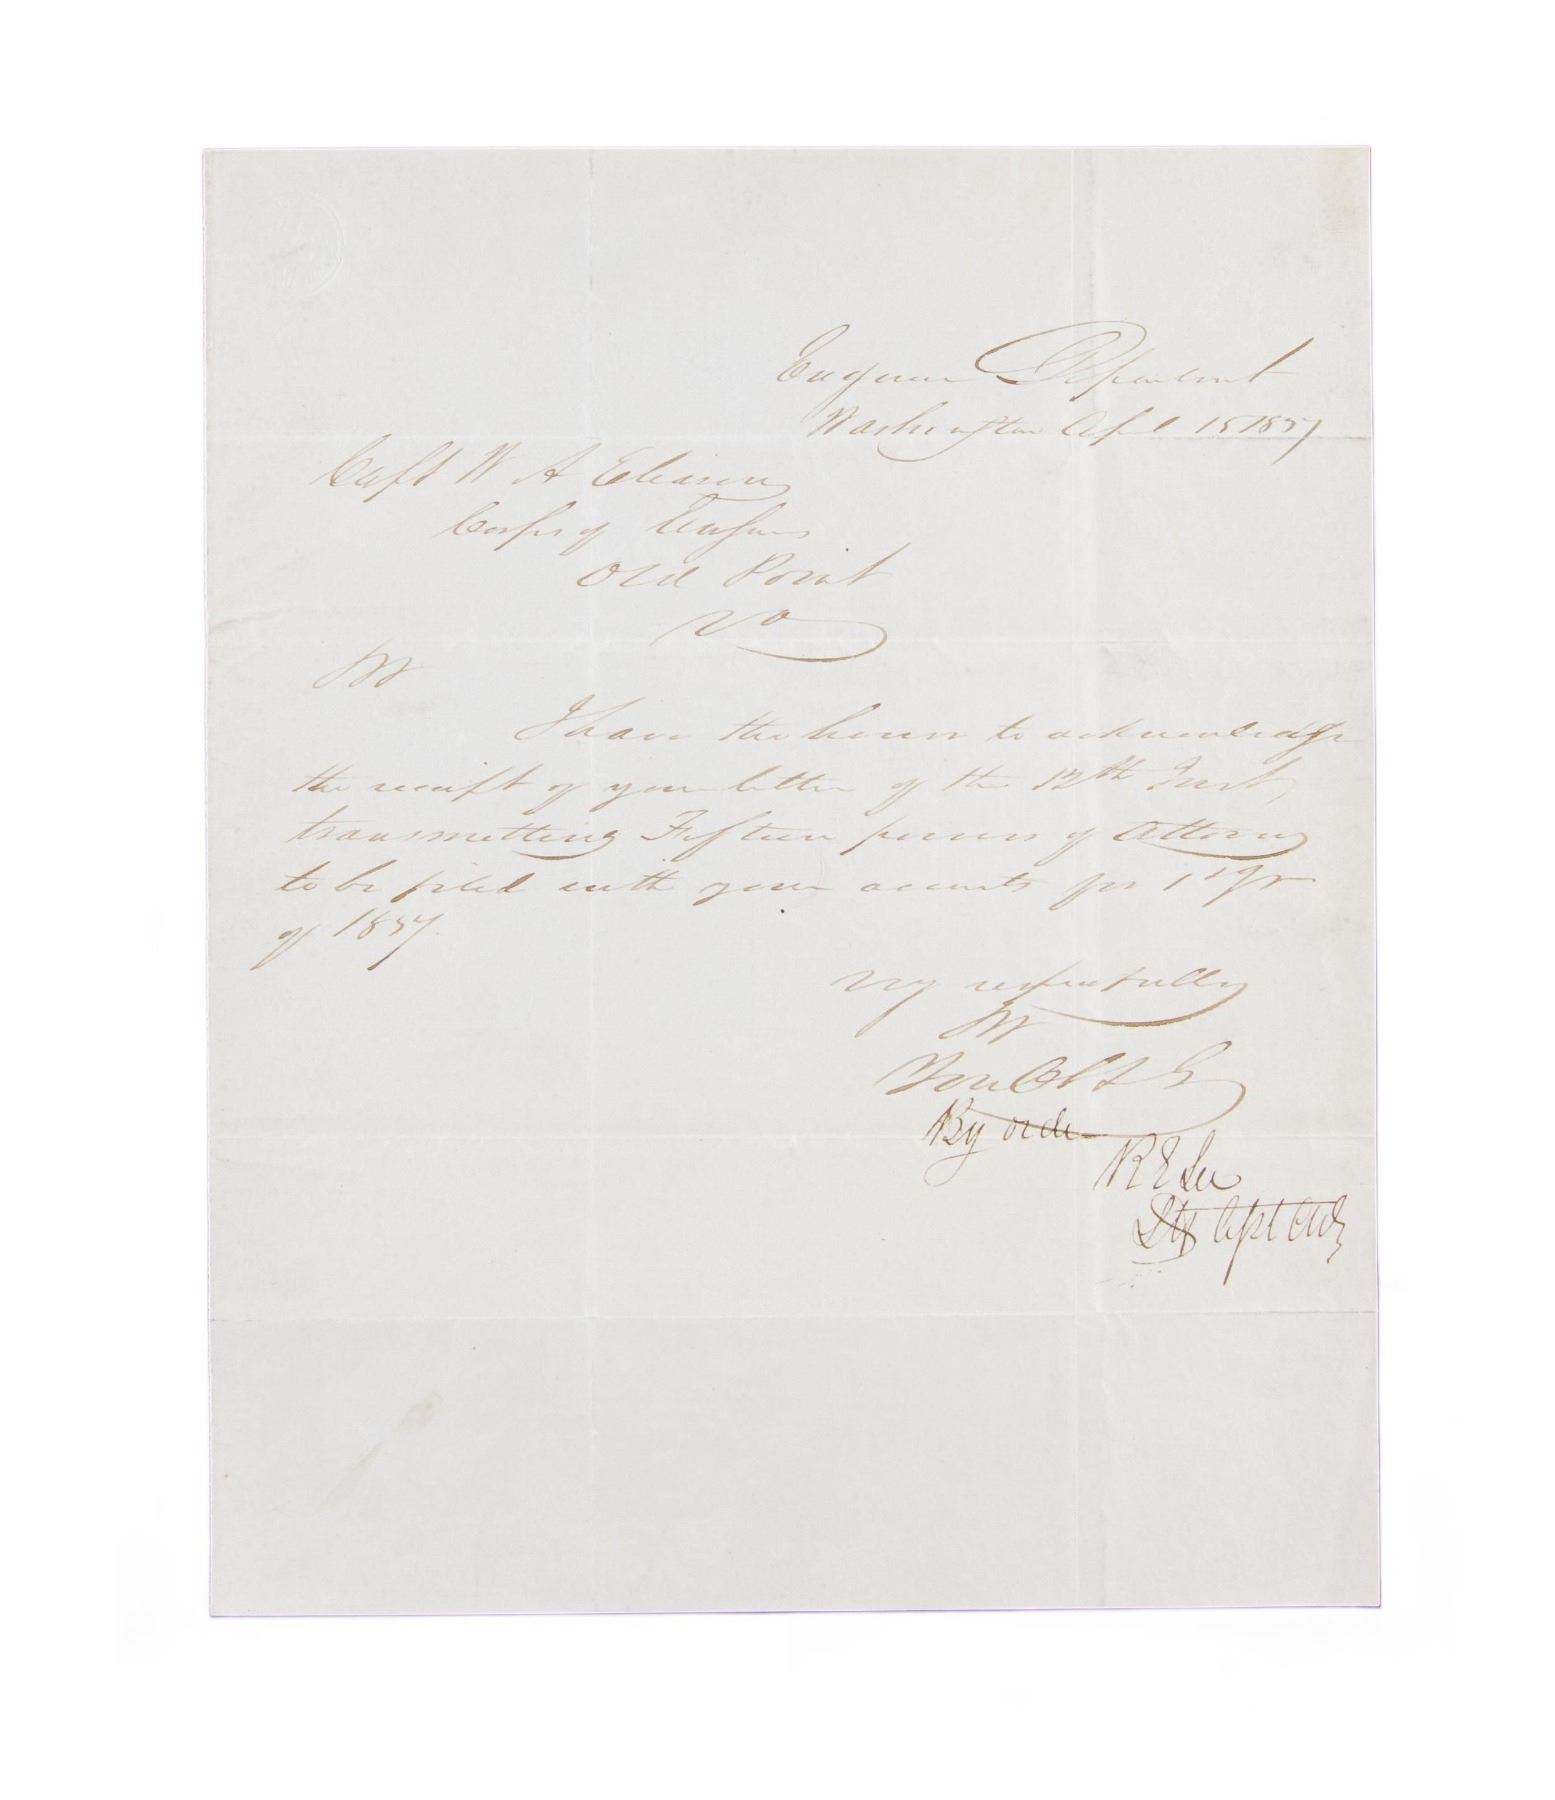 Engineer Department
Washington Apl 15 1837
Capt W A Eliason
Corps of Engrs
Old Point
Va
Sir
I have the honor to acknowledge
the receipt of your letter of the 12th Inst,
transmitting Fifteen powers of Attorney
to be filed with your accounts for 1st qr
of 1837.
Very respectfully
Sir
Your Obt S
By order
R E Lee
Lt &